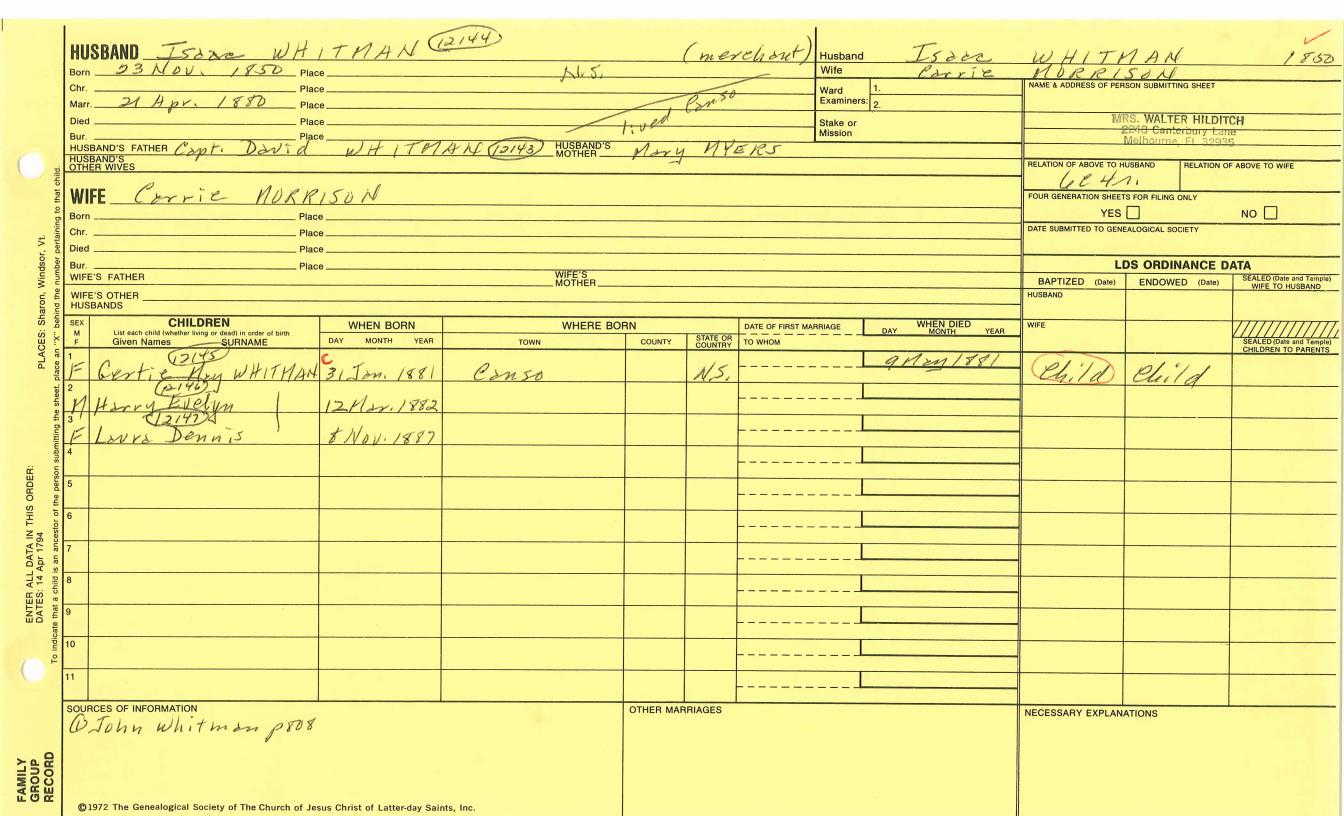 HUSBAND Isaac WHITMAN 12144 (merchant)
Born 23 Nov. 1850 Place N.S.
Chr. Place
Marr. 21 Apr. 1880 Place
Died Place lived Canso
Bur. Place
HUSBAND'S FATHER Capt. David WHITMAN 12143 HUSBAND'S MOTHER Mary MYERS
HUSBAND'S OTHER WIVES
WIFE Carrie MORRISON
Born Place
Chr. Place
Died Place
Bur. Place
WIFE'S FATHER WIFE'S MOTHER
WIFE'S OTHER HUSBANDS
Husband Isaac WHITMAN 1850
Wife Carrie MORRISON
Ward Examiners: 1.
2.
Stake or Mission
NAME & ADDRESS OF PERSON SUBMITTING SHEET
MRS. WALTER HILDITCH
2240 Canterbury Lane
Melbourne, FL 32935
RELATION OF ABOVE TO HUSBAND RELATION OF ABOVE TO WIFE
6c4r.
FOUR GENERATION SHEETS FOR FILING ONLY
YES NO
DATE SUBMITTED TO GENEALOGICAL SOCIETY
LDS ORDINANCE DATA
BAPTIZED (Date) ENDOWED (Date) SEALED (Date and Temple) WIFE TO HUSBAND
HUSBAND
WIFE
SEALED (Date and Temple) CHILDREN TO PARENTS
SEX M F
CHILDREN
List each child (whether living or dead) in order of birth
Given Names SURNAME
WHEN BORN
DAY MONTH YEAR
WHERE BORN
TOWN COUNTY STATE OR COUNTRY
DATE OF FIRST MARRIAGE
TO WHOM
WHEN DIED
DAY MONTH YEAR
1 12145
F Gertie May WHITMAN C 31 Jan. 1881 Canso N.S. 9 May 1881 Child Child
2 12146
M Harry Evelyn 12 Mar. 1882
3 12147
F Laura Dennis 8 Nov. 1887
4
5
6
7
8
9
10
11
SOURCES OF INFORMATION
① John Whitman p808
OTHER MARRIAGES
NECESSARY EXPLANATIONS
©1972 The Genealogical Society of The Church of Jesus Christ of Latter-day Saints, Inc.
FAMILY GROUP RECORD
ENTER ALL DATA IN THIS ORDER:
DATES: 14 Apr 1794 PLACES: Sharon, Windsor, Vt.
To indicate that a child is an ancestor of the person submitting the sheet, place an "X" behind the number pertaining to that child.